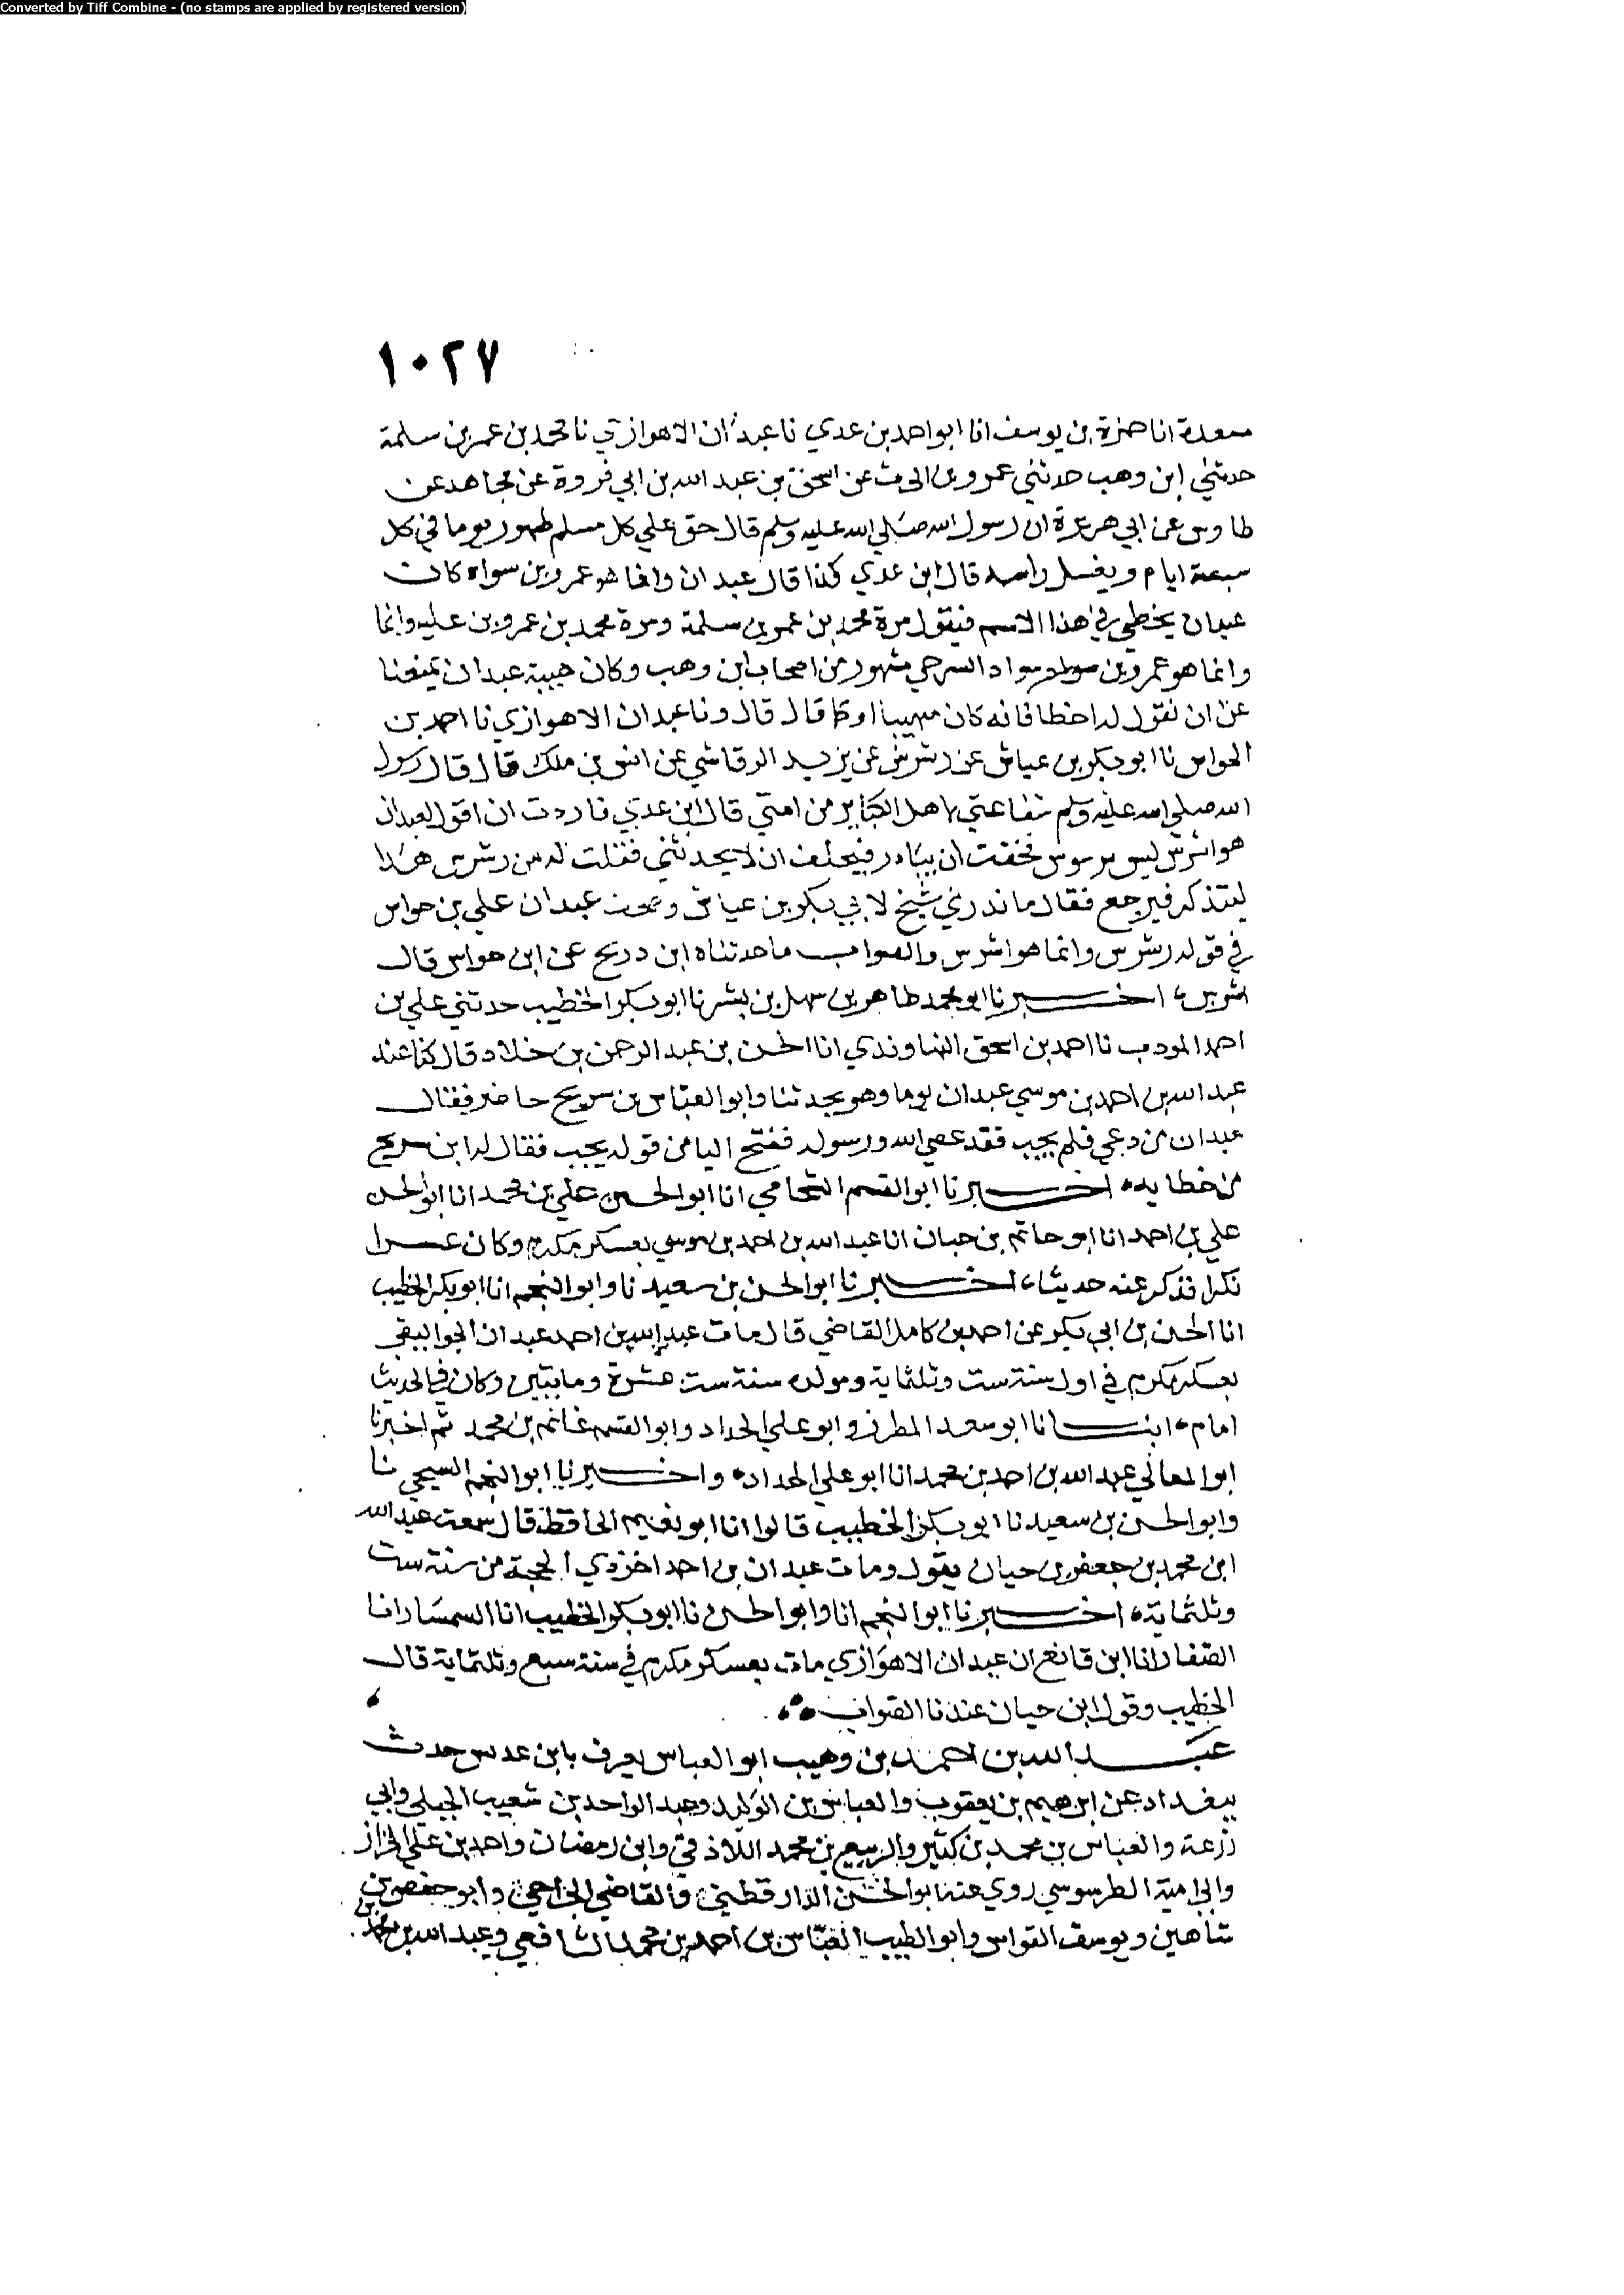 Converted by Tiff Combine - (no stamps are applied by registered version)
١٠٢٧
مسعدة انا حمزة بن يوسف انا ابو احمد بن عدي نا عبدان الاهوازي نا محمد بن عمر بن سلمة
حدثني ابن وهب حدثني عمرو بن الحرث عن اسحق بن عبد الله بن ابي فروة عن مجاهد عن
طاوس عن ابي هريرة ان رسول الله صلي الله عليه وسلم قال حق علي كل مسلم طهور يوما في كل
سبعة ايام ويغسل راسه قال ابن عدي كذا قال عبدان وانما هو عمرو بن سواد كان
عبدان يخطي في هذا الاسم فيقول مرة محمد بن عمر بن سلمة ومرة محمد بن عمرو بن عليه وانما
وانما هو عمرو بن سواد السرحي مشهور من اصحاب ابن وهب وكان هيبة عبدان يمنعنا
عن ان نقول له اخطا فانه كان مهيبا او كما قال قال ونا عبدان الاهوازي نا احمد بن
الحواس نا ابو بكر بن عياش عن رشرش عن يزيد الرقاشي عن انس بن ملك قال قال رسول
الله صلي الله عليه وسلم شفاعتي لاهل الكباير من امتي قال ابن عدي فاردت ان اقول لعبدان
هو اشرش ليس برسوس فخفت ان يبادر فيحلف ان لا يحدثني فقلت له من رشرس هذا
ليتذكر فيرجع فقال ما ندري شيخ لابي بكر بن عياش وصحف عبدان علي بن حواس
في قوله رشرس وانما هو اشرس والصواب ما حدثناه ابن دريح عن ابن حواس قال
اشرس، اخبرنا ابو محمد طاهر بن سهل بن بشر نا ابو بكر الخطيب حدثني علي بن
احمد المودب نا احمد بن اسحق النهاوندي انا الحسن بن عبد الرحمن بن خلاد قال كنا عند
عبد الله بن احمد بن موسي عبدان يوما وهو يحدثنا وابو العباس بن سريج حاضر فقال
عبدان من دعي فلم يجب فقد عصي الله ورسوله ففتح اليا من قوله يجب فقال له ابن سريج
من خطا يده اخبرنا ابو القسم الشحامي انا ابو الحسن علي بن محمد انا ابو الحسن
علي بن احمد انا ابو حاتم بن حبان انا عبد الله بن احمد بن موسي بعسكر مكرم وكان عسرا
نكرا فذكر عنه حديثا، اخبرنا ابو الحسن بن سعيد نا وابو النجم انا ابو بكر الخطيب
انا الحسن بن ابي بكر عن احمد بن كامل القاضي قال مات عبد الله بن احمد عبدان الجواليقي
بعسكر مكرم في اول سنة ست وثلثماية ومولده سنة ست عشرة ومايتين وكان في الحديث
امام، انبانا ابو سعد المطرز وابو علي الحداد وابو القسم غانم بن محمد ثم اخبرنا
ابو المعالي عبد الله بن احمد بن محمد انا ابو علي الحداد، واخبرنا ابو النجم السيحي نا
وابو الحسن بن سعيد نا ابو بكر الخطيب قالوا انا ابو نعيم الحافظ قال سمعت عبد الله
ابن محمد بن جعفر بن حيان يقول ومات عبدان بن احمد اخر ذي الحجة من سنة ست
وثلثماية، اخبرنا ابو النجم انا وابو الحسن نا ابو بكر الخطيب انا السمسار انا
الصفار انا ابن قانع ان عبدان الاهوازي مات بعسكر مكرم في سنة سبع وثلثماية قال
الخطيب وقول ابن حيان عندنا الصواب
عبد الله بن احمد بن وهيب ابو العباس يعرف بابن عدس حدث
ببغداد عن ابرهيم بن يعقوب والعباس بن الوليد وعبد الواحد بن شعيب الجبلي وابي
زرعة والعباس بن محمد بن كثير والربيع بن محمد اللاذقي وابن رمضان واحمد بن علي الخزاز
وابي امية الطرسوسي روي عنه ابو الحسن الدارقطني والقاضي الجراحي وابو حفص بن
شاهين ويوسف القواس وابو الطيب العباس بن احمد بن محمد الشافعي وعبد الله بن محمد